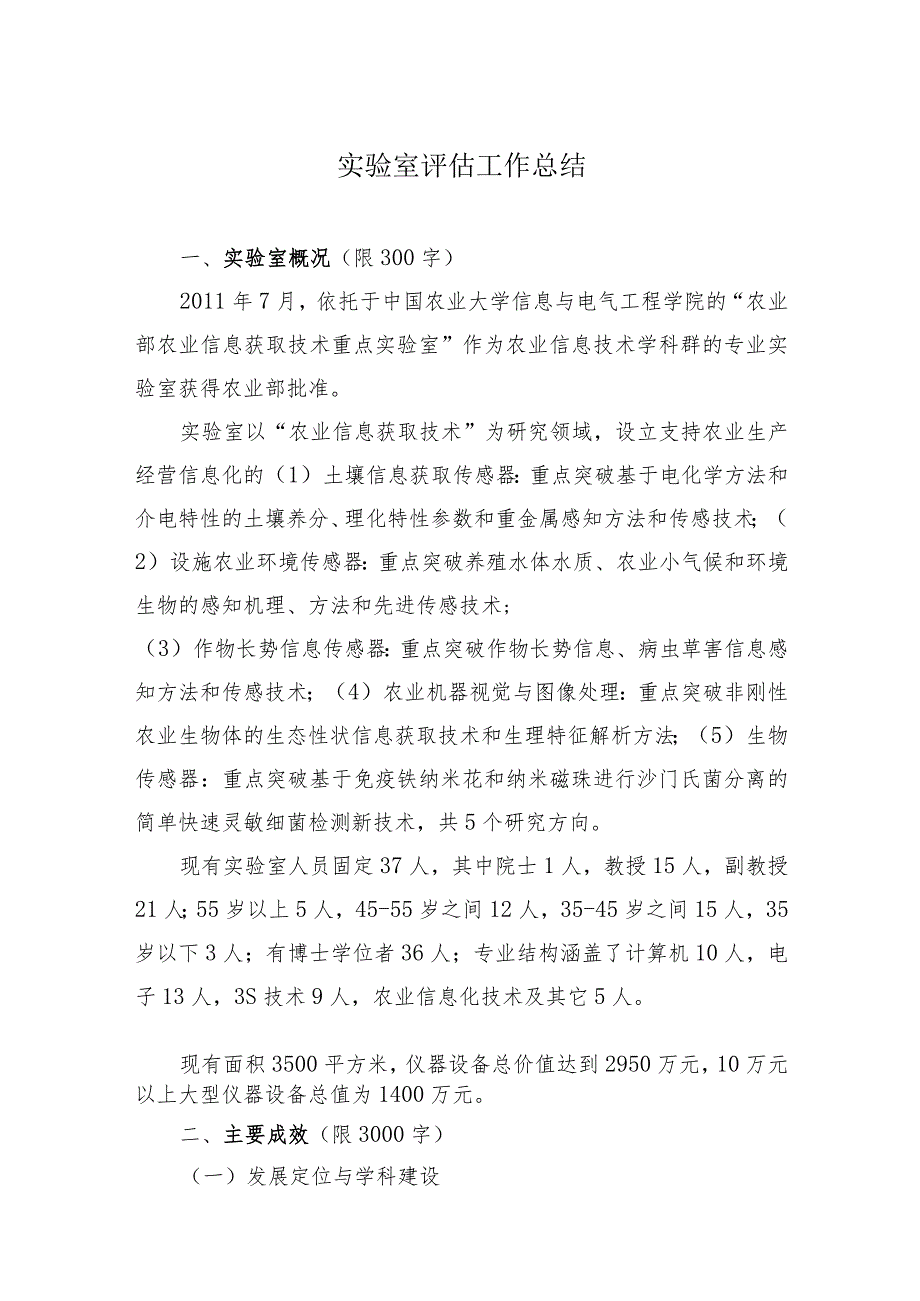 实验室评估工作总结
一、实验室概况（限300字）
2011年7月，依托于中国农业大学信息与电气工程学院的“农业
部农业信息获取技术重点实验室”作为农业信息技术学科群的专业实
验室获得农业部批准。
实验室以“农业信息获取技术”为研究领域，设立支持农业生产
经营信息化的（1）土壤信息获取传感器：重点突破基于电化学方法和
介电特性的土壤养分、理化特性参数和重金属感知方法和传感技术；（
2）设施农业环境传感器：重点突破养殖水体水质、农业小气候和环境
生物的感知机理、方法和先进传感技术；
（3）作物长势信息传感器：重点突破作物长势信息、病虫草害信息感
知方法和传感技术；（4）农业机器视觉与图像处理：重点突破非刚性
农业生物体的生态性状信息获取技术和生理特征解析方法；（5）生物
传感器：重点突破基于免疫铁纳米花和纳米磁珠进行沙门氏菌分离的
简单快速灵敏细菌检测新技术，共5个研究方向。
现有实验室人员固定37人，其中院士1人，教授15人，副教授
21人；55岁以上5人，45-55岁之间12人，35-45岁之间15人，35
岁以下3人；有博士学位者36人；专业结构涵盖了计算机10人，电
子13人，3S技术9人，农业信息化技术及其它5人。
现有面积3500平方米，仪器设备总价值达到2950万元，10万元
以上大型仪器设备总值为1400万元。
二、主要成效（限3000字）
（一）发展定位与学科建设